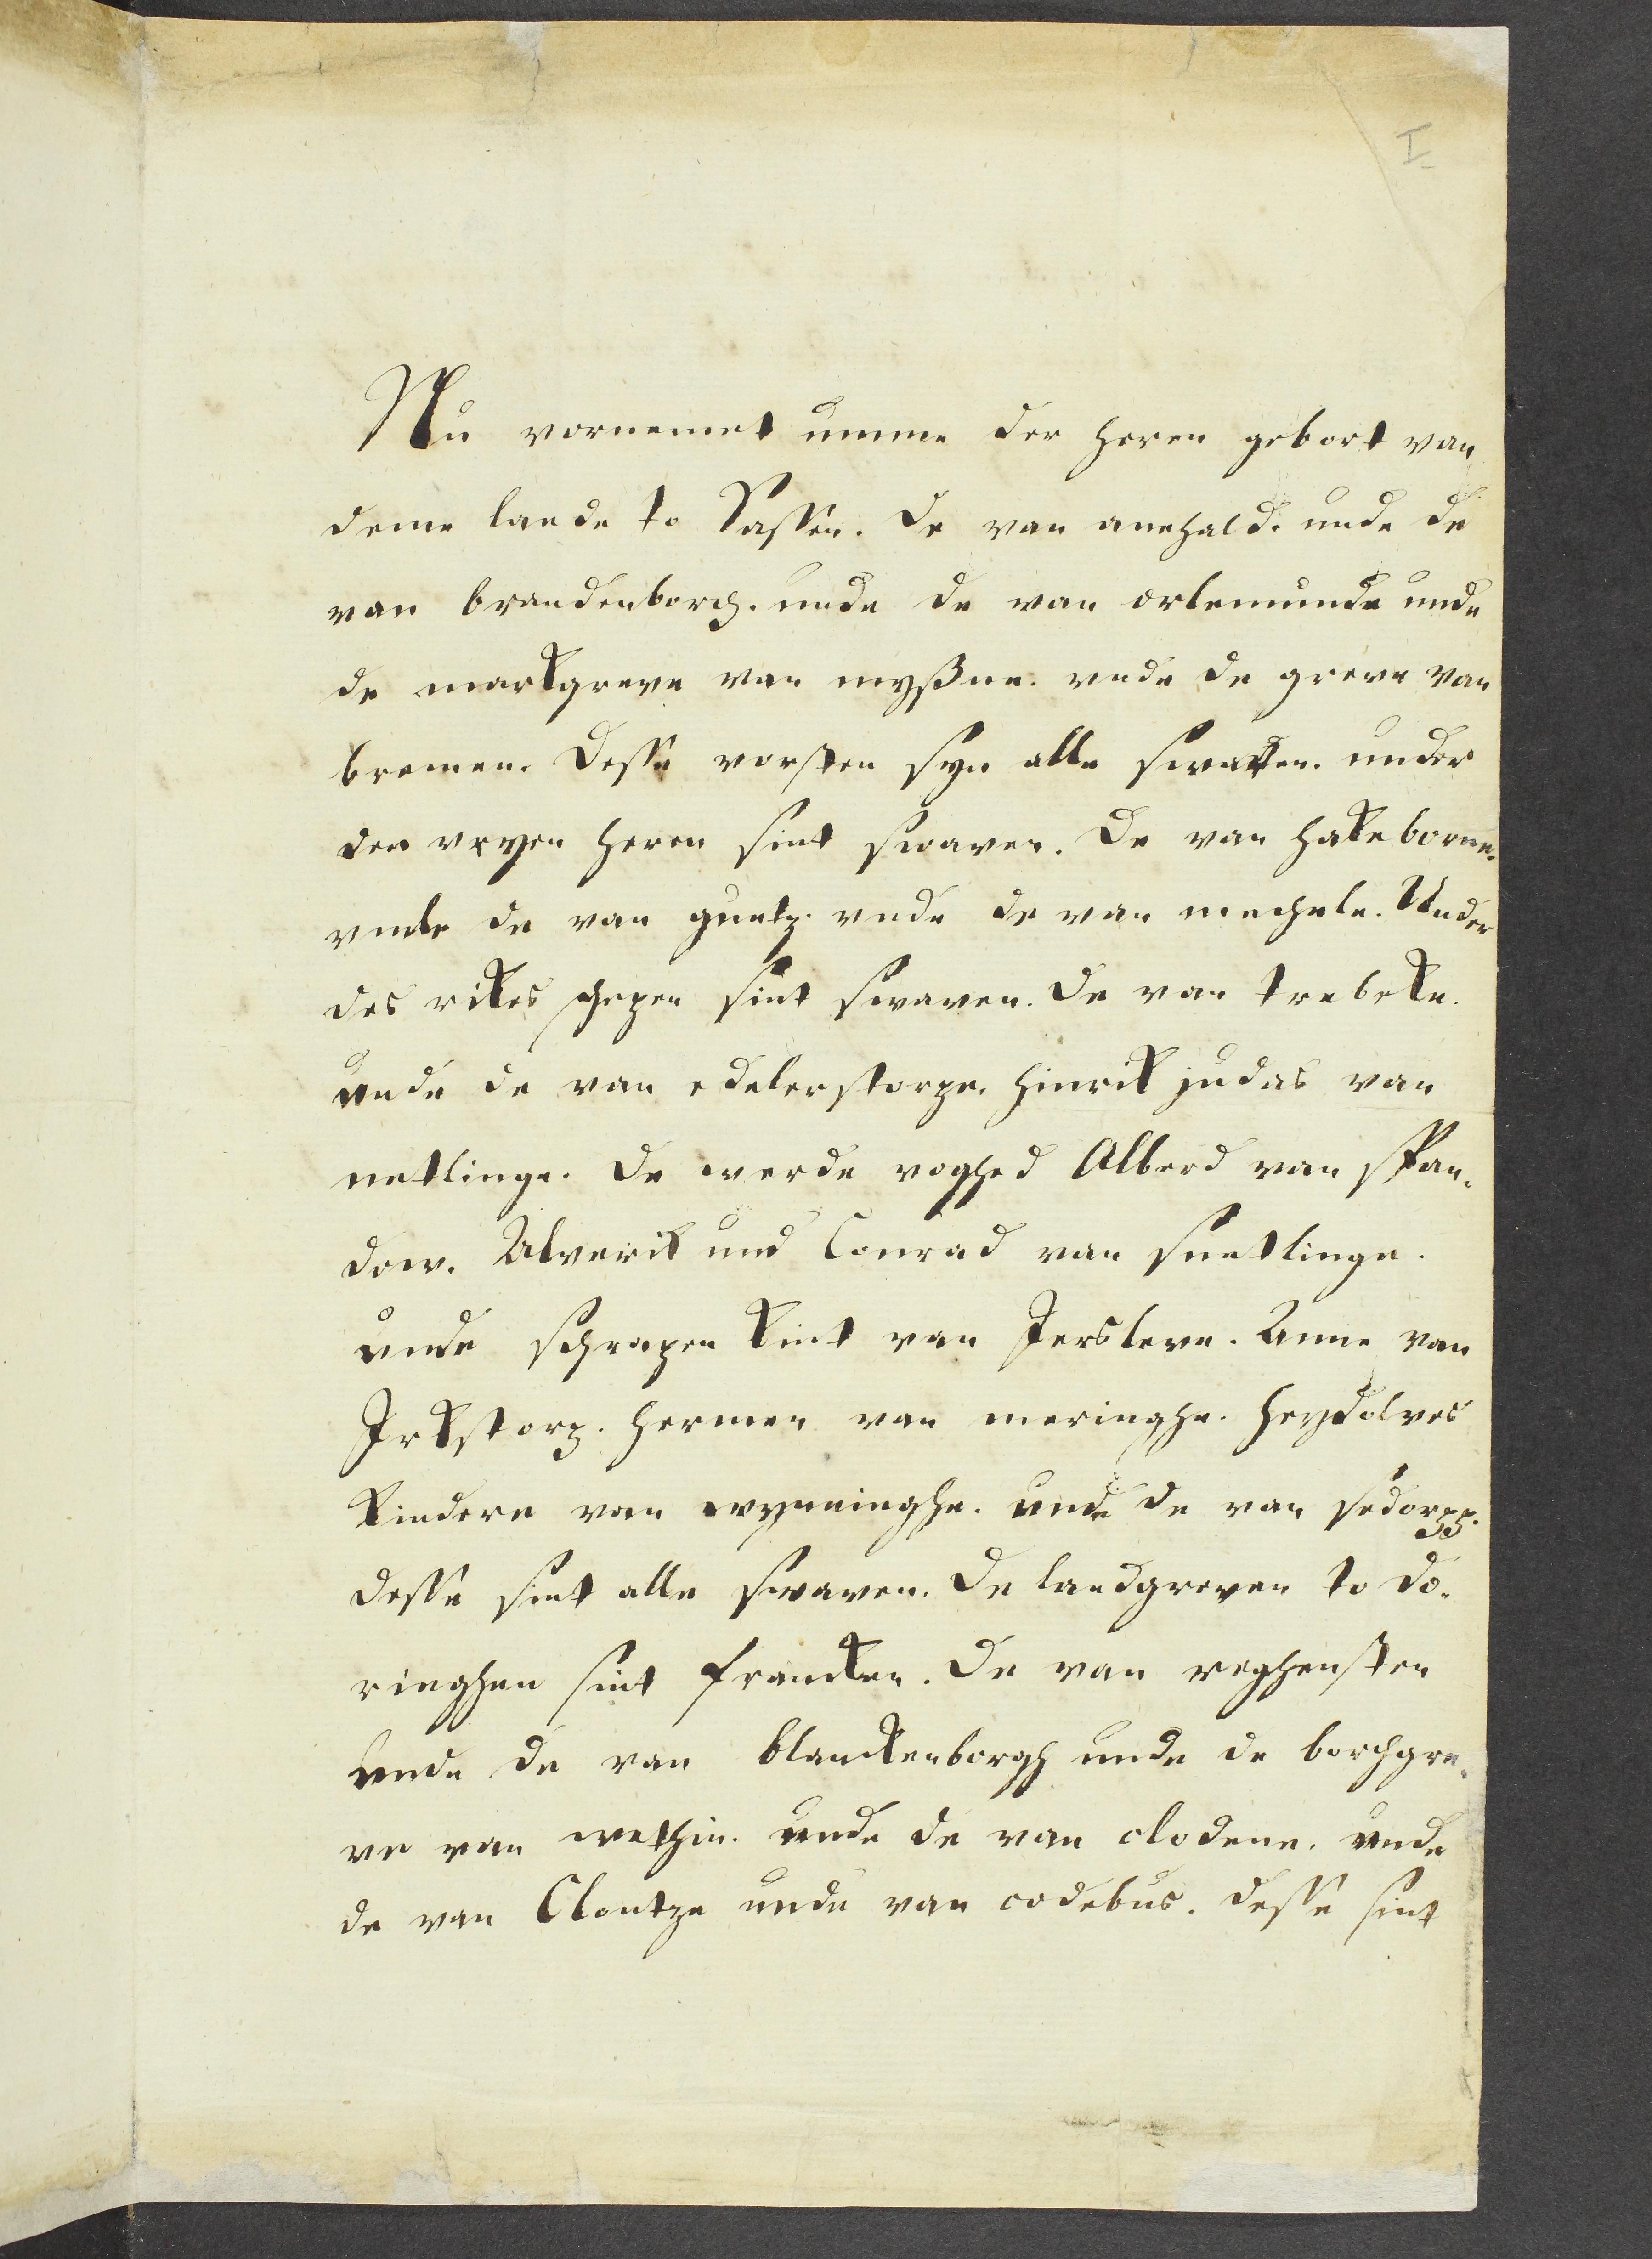 I
Nu vornemet umme der heren gebort van
deme lande to Sassen. De van anehald. unde de
van brandenborch. unde de van orlemunde unde
de markgreve van myßne. unde de greve van
bremen. Desse vorsten syn alle swaven. under
den vryen heren sint swaven. De van hakeborne.
unde de van gnetz. unde de van mechele. Under
des rikes schepen sint swaven. De van trebeke.
unde de van edelerstorpe. hinrik judas van
netlinge. De werde voghed Alberd van span-
dow. Alverik und Conrad van snetlinge.
unde schrapen kint van Jersleve. Anne van
Jrkstorp. hermen van meringhe. heydolves
kindere van wynninghe. unde de van sedorpp.
desse sint alle swaven. De landgreven to do-
ringhen sint francken. De van reghensten
unde de van blanckenborgh unde de borchgre-
ve van wethin. unde de van clodene. unde
de van Clontze unde van codebus. desse sint